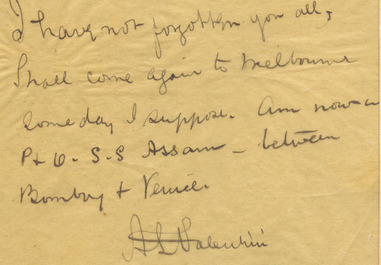 I have not forgotten you all,
Shall come again to Melbourne
someday I suppose. Am now on
P & O. S.S Assam – between
Bombay & Venice.
A L Valentini